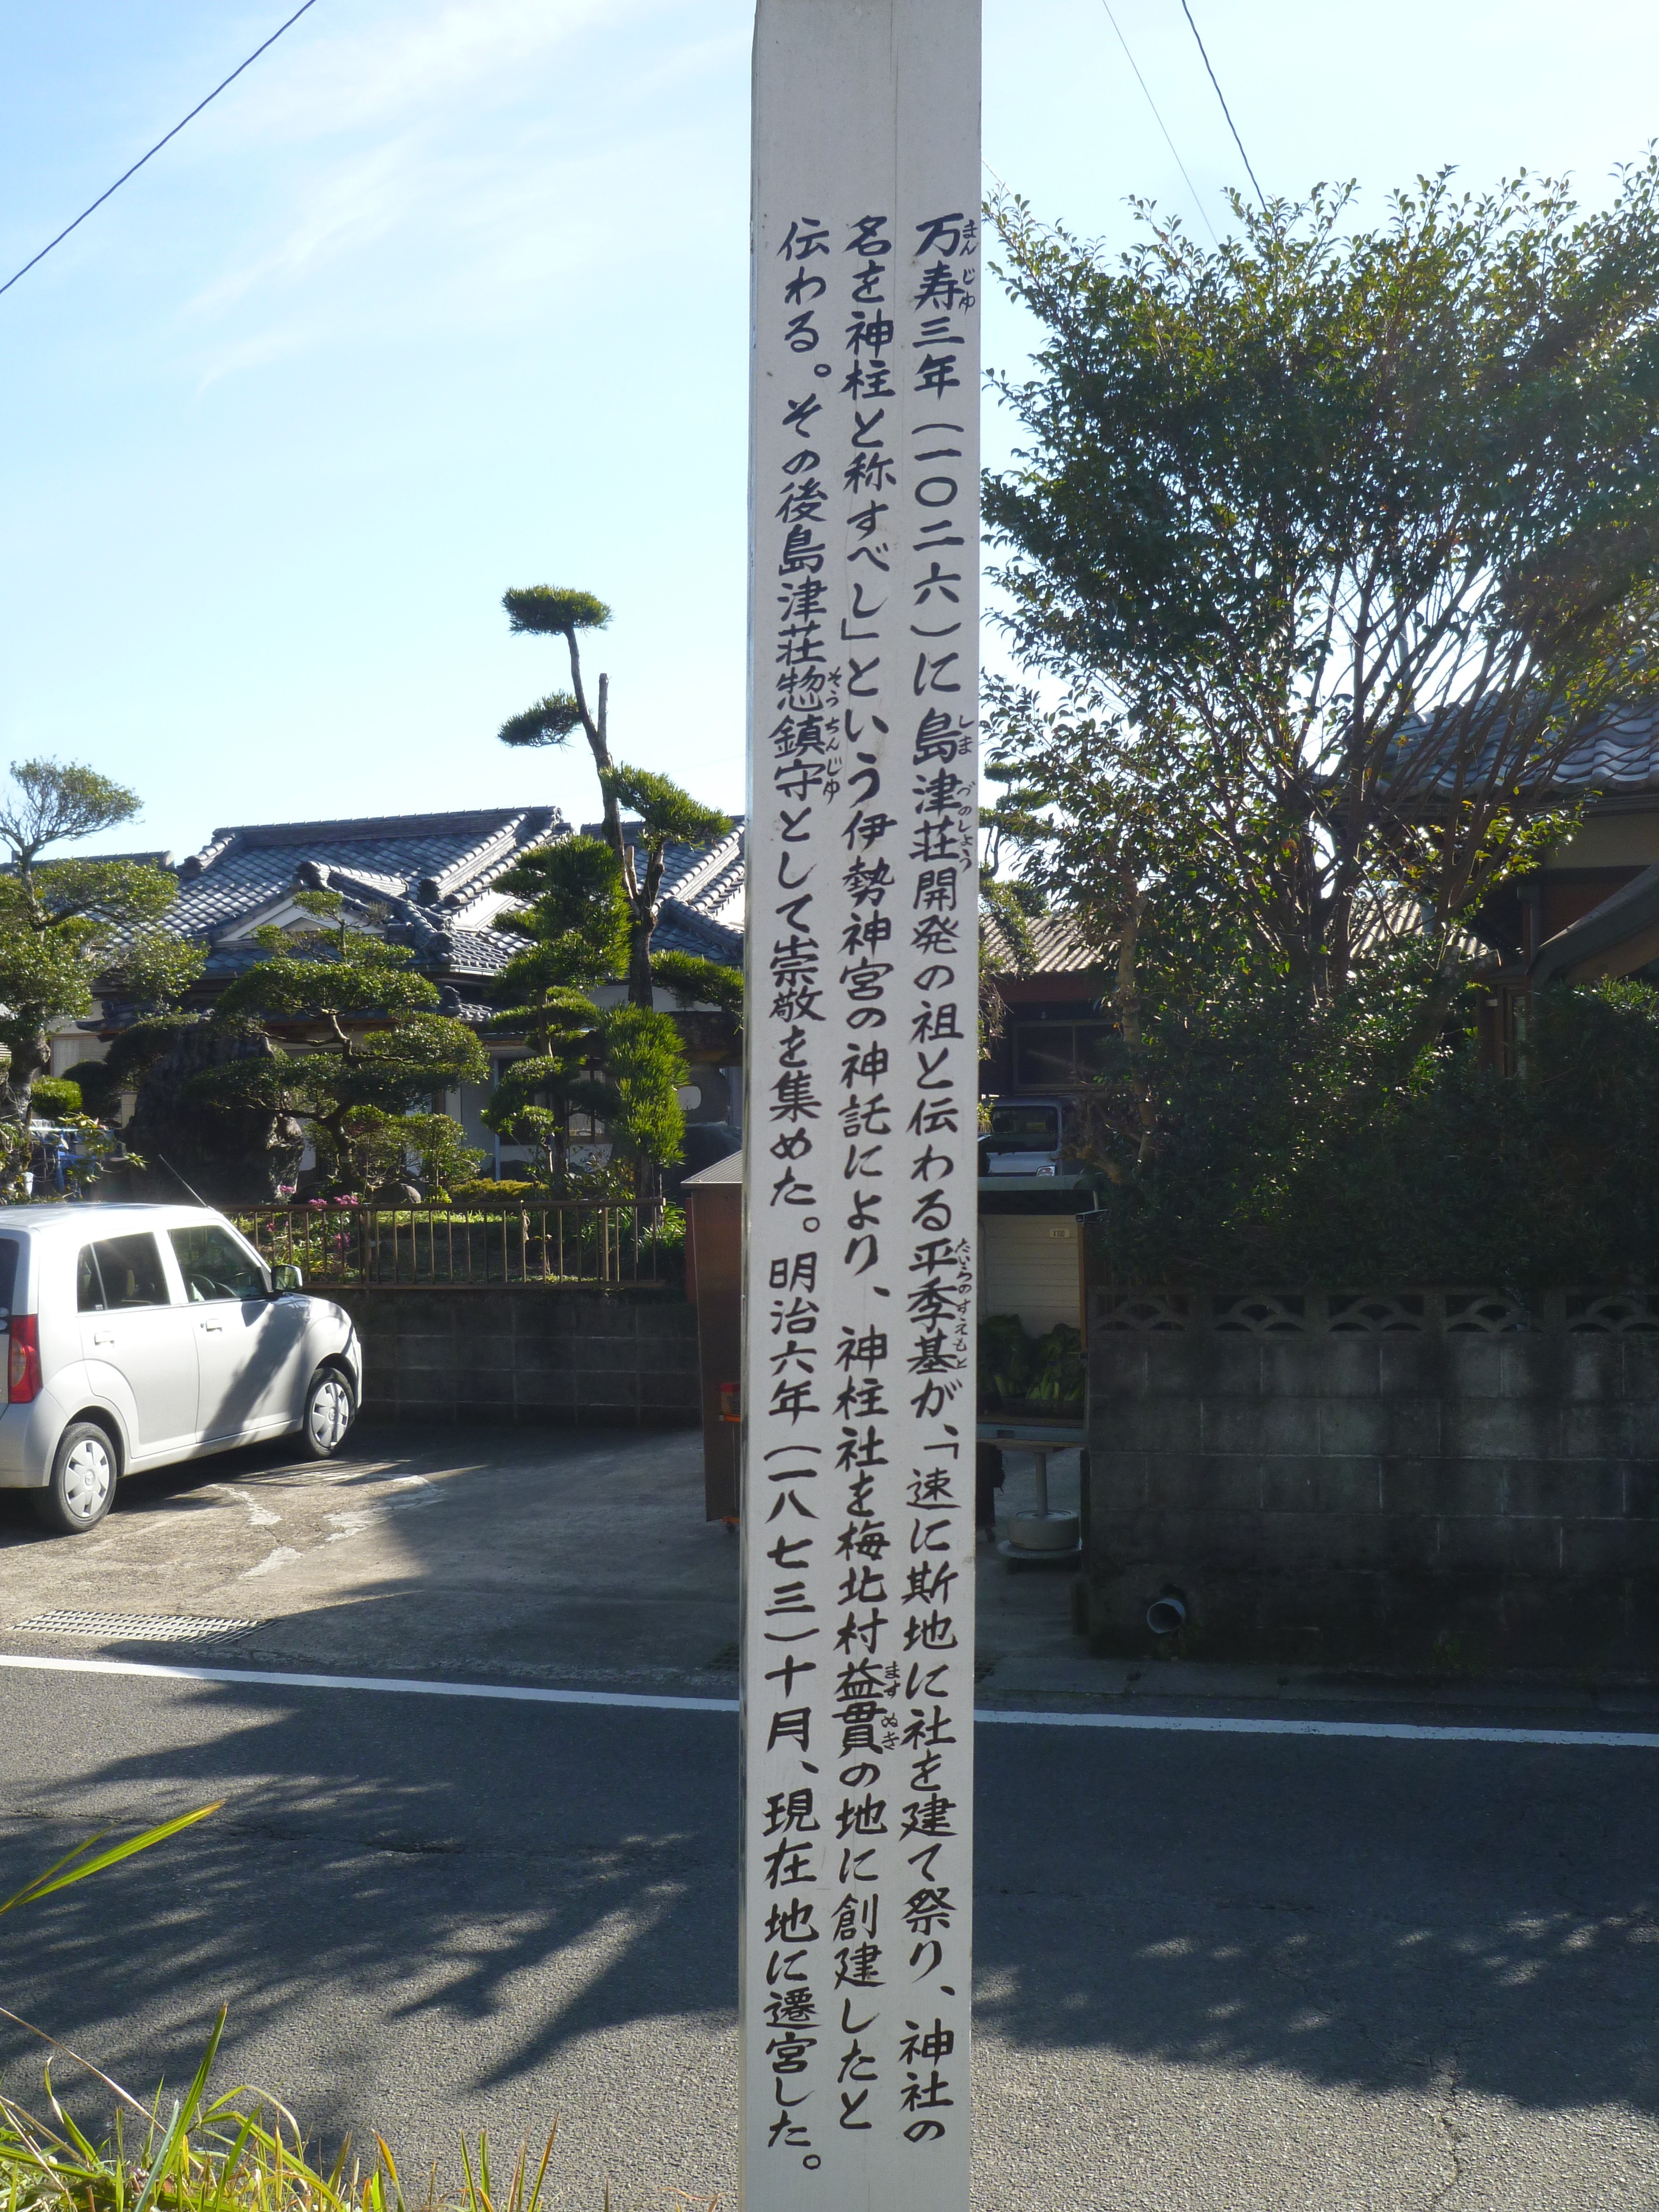 万寿三年(一〇二六)に島津荘開発の祖と伝わる平季基が、「速に斯地に社を建て祭り、神社の
名を神柱と称すべし」という伊勢神宮の神託により、神柱社を梅北村益貫の地に創建したと
伝わる。その後島津荘惣鎮守として崇敬を集めた。明治六年(一八七三)十月、現在地に遷宮した。
まんじゅ
しまづのしょう
たいらのすえもと
ますぬき
そうちんじゅ